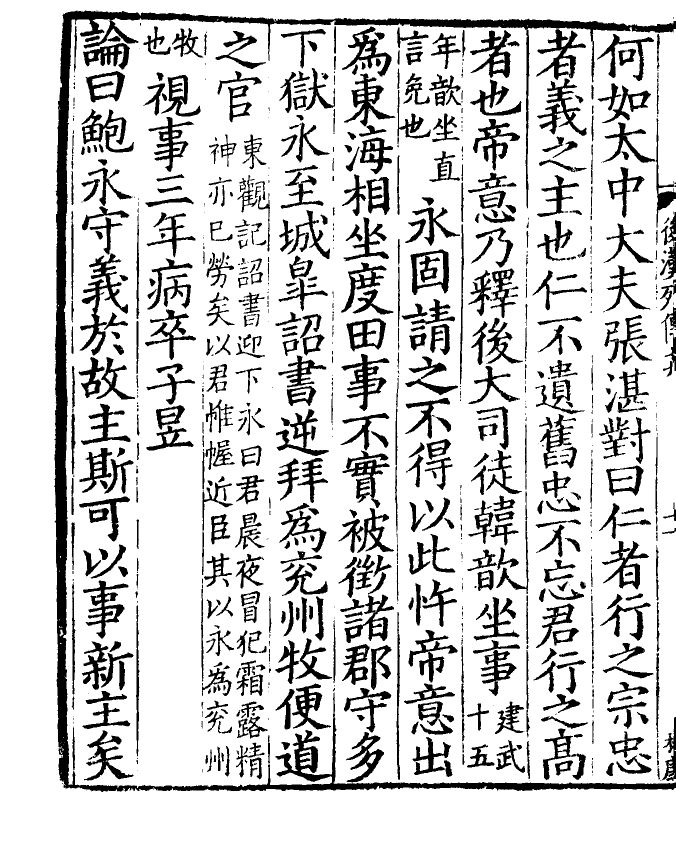 何如太中大夫張湛對曰仁者行之宗忠
者義之主也仁不遺舊忠不忘君行之高
者也帝意乃釋後大司徒韓歆坐事建武十五
年歆坐直言免也永固請之不得以此忤帝意出
為東海相坐度田事不實被徵諸郡守多
下獄永至城皐詔書逆拜為兖州牧便道
之官東觀記詔書迎下永曰君晨夜冒犯霜露精神亦已勞矣以君帷幄近臣其以永為兖州
牧也視事三年病卒子昱
論曰鮑永守義於故主斯可以事新主矣